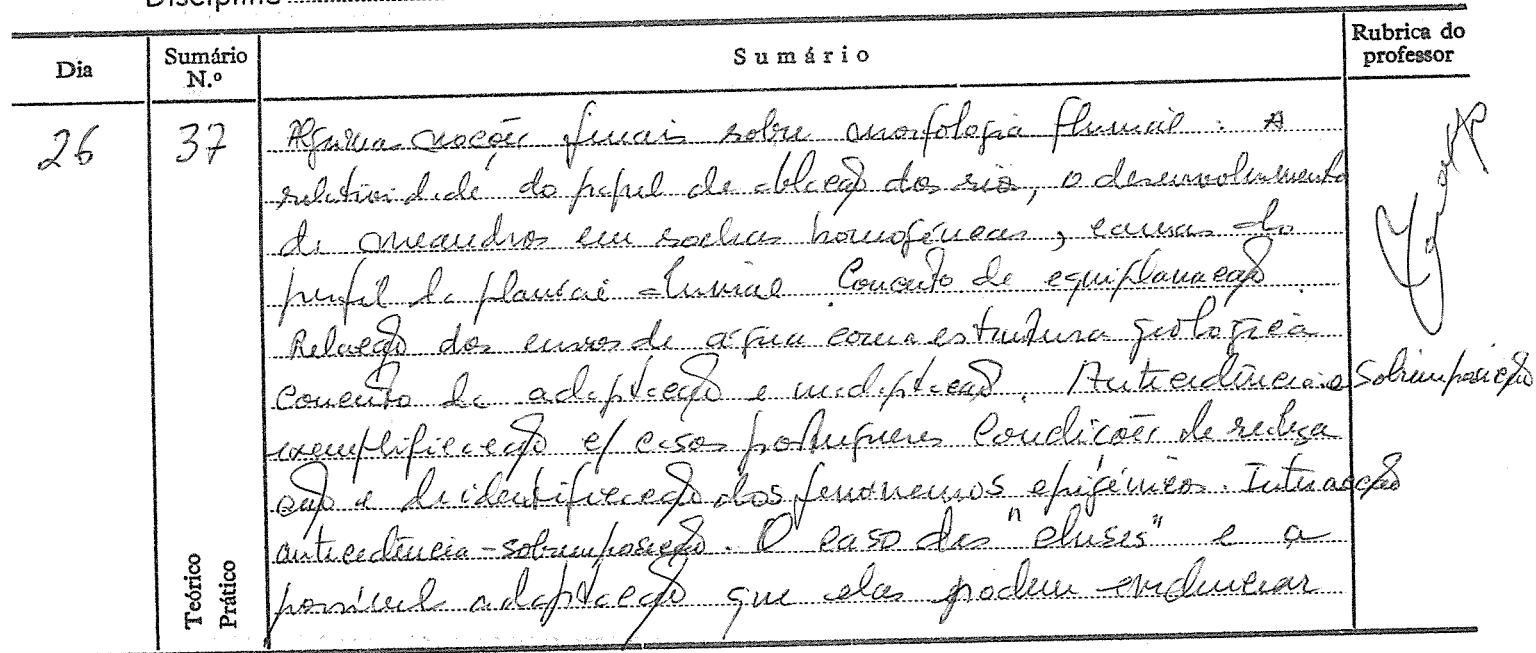 Disciplina
Dia
Sumário N.º
Sumário
Rubrica do professor
26
37
Algumas noções finais sobre morfologia fluvial: A
relatividade do papel de ablação dos rios, o desenvolvimento
de meandros em rochas homogéneas, causas do
perfil da planície aluvial. Conceito de equiplanação.
Relação dos cursos de água com a estrutura geológica
Conceito de adaptação e inadaptação. Antecedência e sobreimposição
exemplificação c/ casos portugueses Condições de realiza
ção e de identificação dos fenómenos epigénicos. Interacção
antecedência-sobreimposição. O caso das "cluses" e a
possível adaptação que elas podem evidenciar
Teórico
Prático